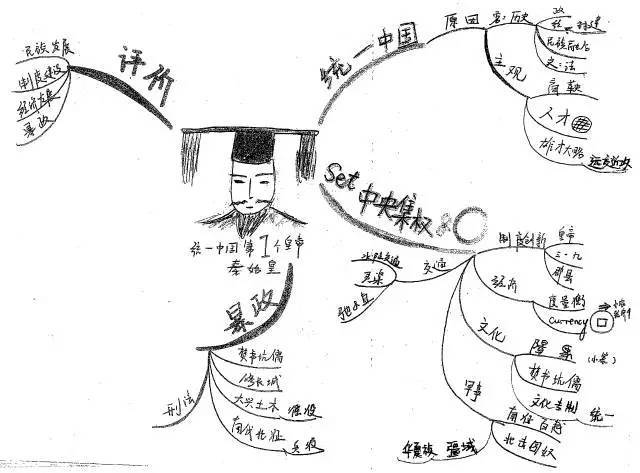 统一中国
原因
客:历史
政
经
封建
民族融合
文:法
主观
商鞅
人才
雄才大略
远交近攻
Set 中央集权
制度创新
皇帝
三·九
郡县
经济
度量衡
currency
文化
隶
(小篆)
焚书坑儒
文化专制
统一
军事
南征百越
北击匈奴
华夏族 疆域
交通
水陆交通
灵渠
驰、直
统一中国第1个皇帝
秦始皇
暴政
焚书坑儒
修长城
大兴土木
徭役
南伐北征
兵役
刑法
评价
民族发展
制度建设
经济发展
暴政